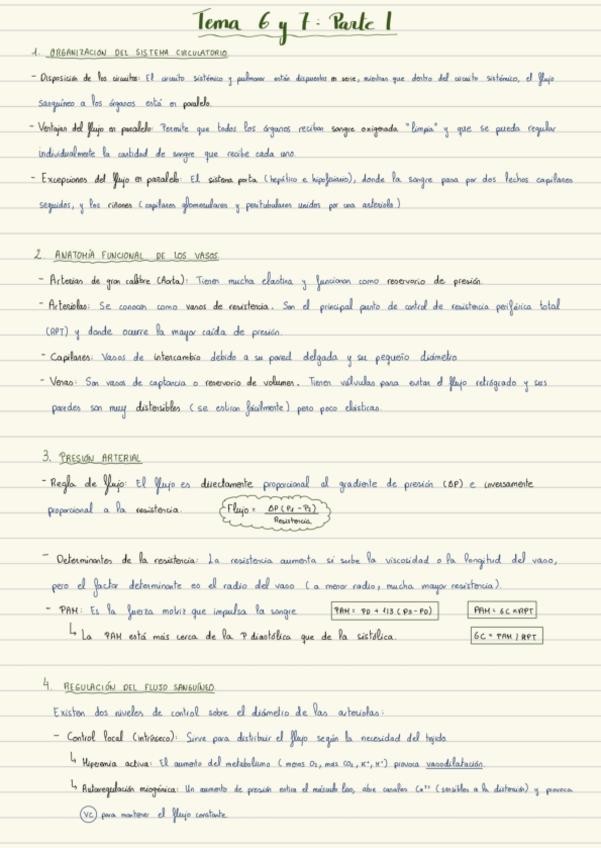 Tema 6 y 7: Parte 1
1. ORGANIZACIÓN DEL SISTEMA CIRCULATORIO
- Disposición de los circuitos: El circuito sistémico y pulmonar están dispuestos en serie, mientras que dentro del circuito sistémico, el flujo
sanguíneo a los órganos está en paralelo.
- Ventajas del flujo en paralelo: Permite que todos los órganos reciban sangre oxigenada "limpia" y que se pueda regular
individualmente la cantidad de sangre que recibe cada uno.
- Excepciones del flujo en paralelo: El sistema porta (hepático e hipofisario), donde la sangre pasa por dos lechos capilares
seguidos, y los riñones (capilares glomerulares y peritubulares unidos por una arteriola.)
2. ANATOMÍA FUNCIONAL DE LOS VASOS
- Arterias de gran calibre (Aorta): Tienen mucha elastina y funcionan como reservorio de presión.
- Arteriolas: Se conocen como vasos de resistencia. Son el principal punto de control de resistencia periférica total
(RPT) y donde ocurre la mayor caída de presión.
- Capilares: Vasos de intercambio debido a su pared delgada y su pequeño diámetro
- Venas: Son vasos de captancia o reservorio de volumen. Tienen válvulas para evitar el flujo retrógrado y sus
paredes son muy distensibles (se estiran fácilmente) pero poco elásticas.
3. PRESIÓN ARTERIAL
- Regla de flujo: El flujo es directamente proporcional al gradiente de presión (ΔP) e inversamente
proporcional a la resistencia. Flujo = ΔP (P1 - P2) / Resistencia
- Determinantes de la resistencia: La resistencia aumenta si sube la viscosidad o la longitud del vaso,
pero el factor determinante es el radio del vaso (a menor radio, mucha mayor resistencia).
- PAM: Es la fuerza motriz que impulsa la sangre PAM = PD + 1/3 (PS - PD) PAM = GC x RPT
↳ La PAM está más cerca de la P diastólica que de la sistólica. GC = PAM / RPT
4. REGULACIÓN DEL FLUJO SANGUÍNEO
Existen dos niveles de control sobre el diámetro de las arteriolas:
- Control local (intrínseco): Sirve para distribuir el flujo según la necesidad del tejido.
↳ Hiperemia activa: El aumento del metabolismo (menos O2, más CO2, K+, H+) provoca vasodilatación.
↳ Autorregulación miogénica: Un aumento de presión estira el músculo liso, abre canales Ca++ (sensibles a la distensión) y provoca
VC para mantener el flujo constante.